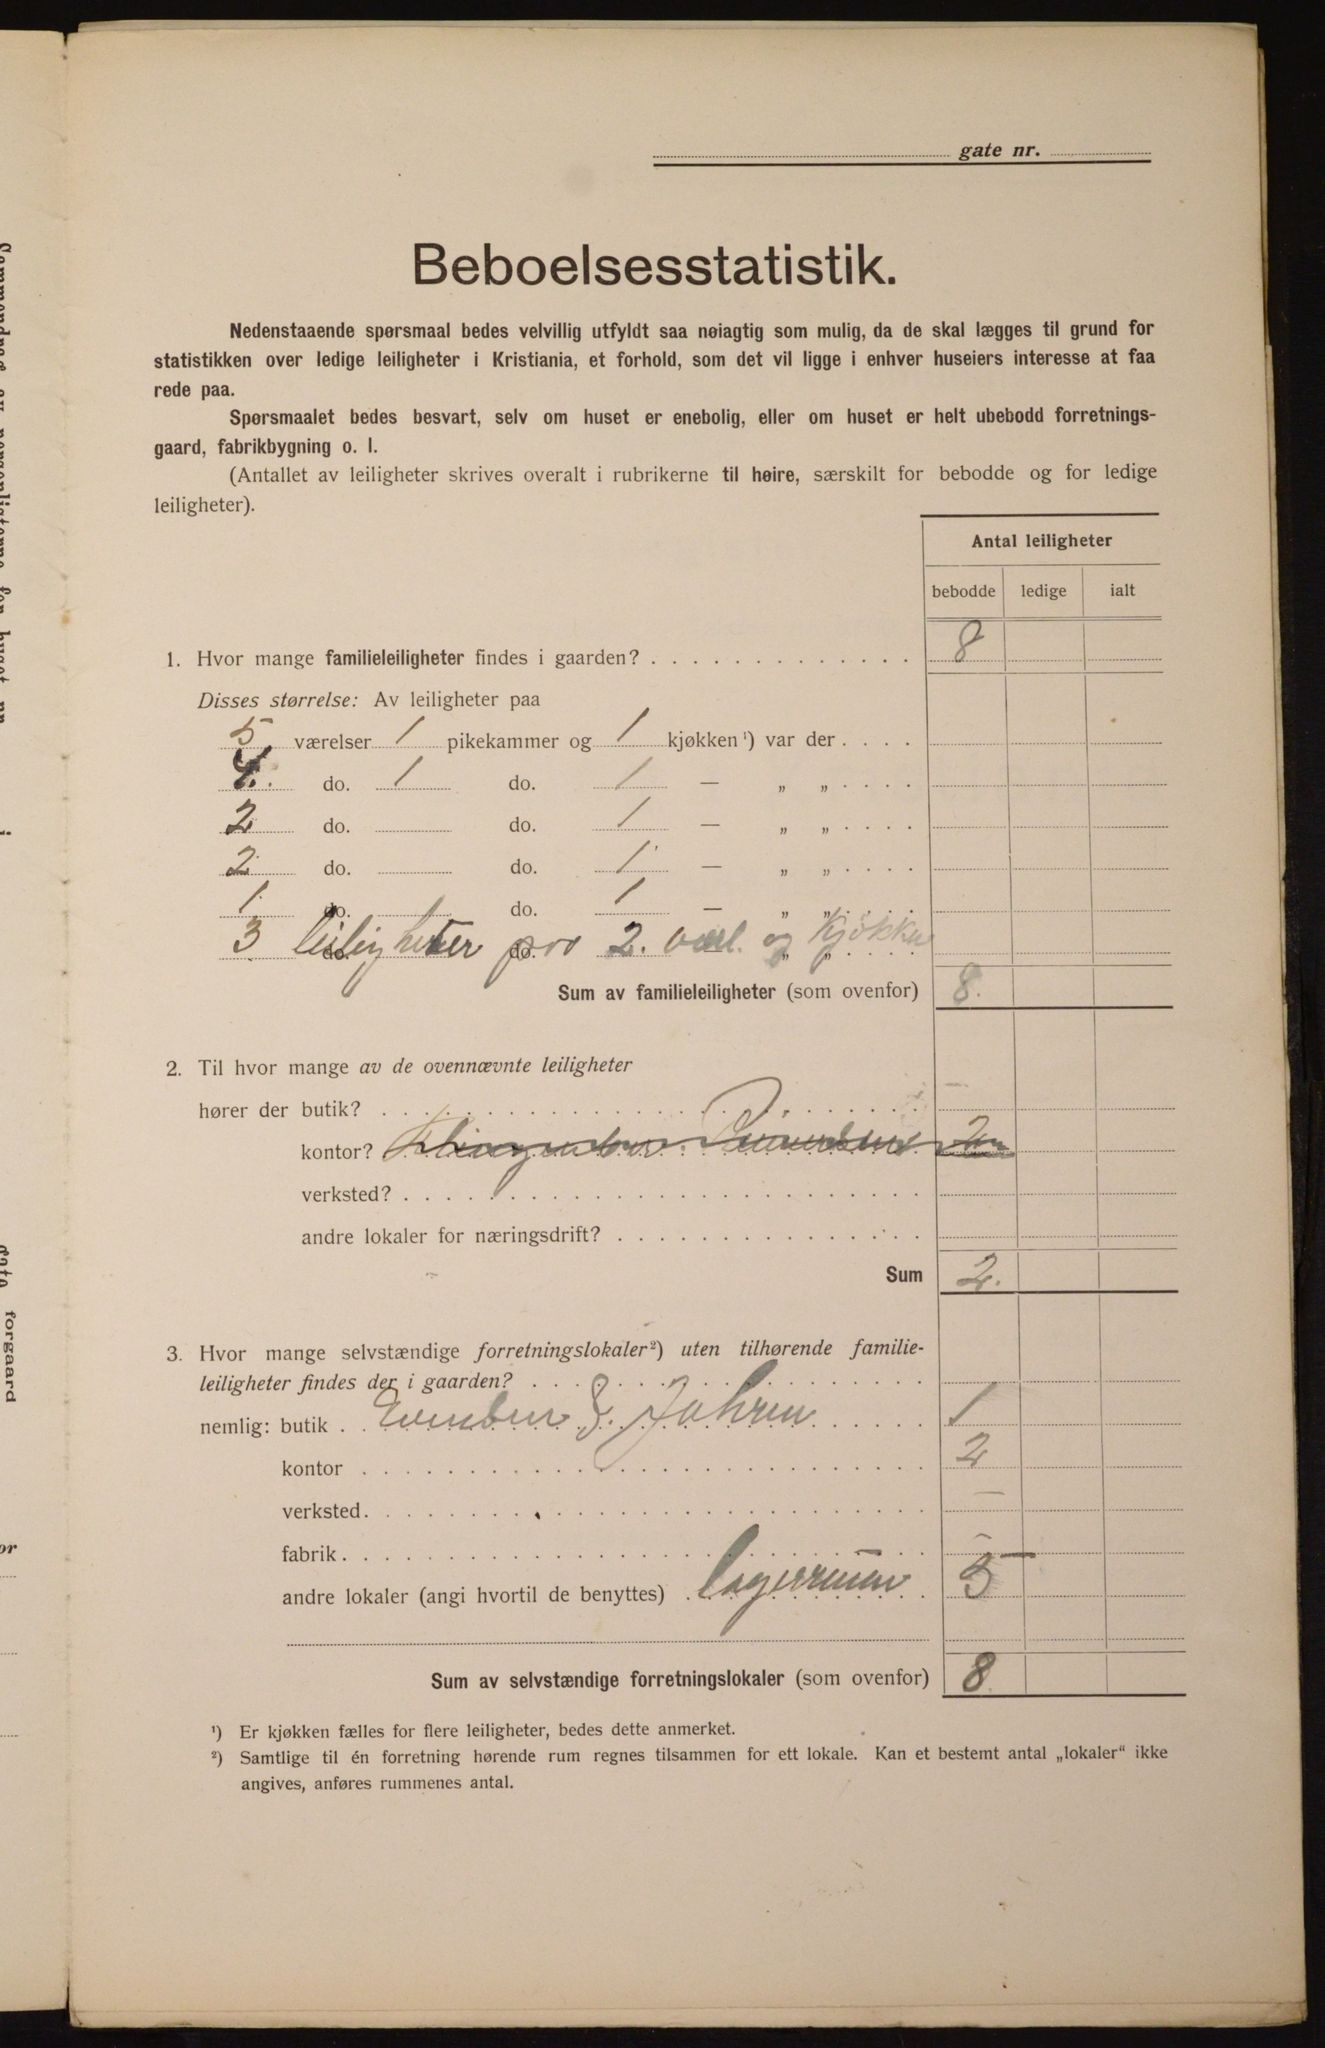 gate nr.
Beboelsesstatistik.
Nedenstaaende spørsmaal bedes velvillig utfyldt saa nøiagtig som mulig, da de skal lægges til grund for
statistikken over ledige leiligheter i Kristiania, et forhold, som det vil ligge i enhver huseiers interesse at faa
rede paa.
Spørsmaalet bedes besvart, selv om huset er enebolig, eller om huset er helt ubebodd forretnings-
gaard, fabrikbygning o. l.
(Antallet av leiligheter skrives overalt i rubrikerne til høire, særskilt for bebodde og for ledige
leiligheter).
Antal leiligheter
bebodde ledige ialt
1. Hvor mange familieleiligheter findes i gaarden? 8
Disses størrelse: Av leiligheter paa
5 værelser 1 pikekammer og 1 kjøkken ¹) var der
4. do. 1 do. 1 — „ „
2 do. do. 1 — „ „
2 do. do. 1 — „ „
1 do. do. 1 — „ „
3 leiligheter do. 2. og Kjøkken „ „
Sum av familieleiligheter (som ovenfor) 8.
2. Til hvor mange av de ovennævnte leiligheter
hører der butik? —
kontor? 2
verksted?
andre lokaler for næringsdrift?
Sum 2.
3. Hvor mange selvstændige forretningslokaler²) uten tilhørende familie-
leiligheter findes der i gaarden?
nemlig: butik . 1
kontor 2
verksted. —
fabrik. —
andre lokaler (angi hvortil de benyttes) Lagerrum 5
Sum av selvstændige forretningslokaler (som ovenfor) 8
¹) Er kjøkken fælles for flere leiligheter, bedes dette anmerket.
²) Samtlige til én forretning hørende rum regnes tilsammen for ett lokale. Kan et bestemt antal „lokaler“ ikke
angives, anføres rummenes antal.
forgaard